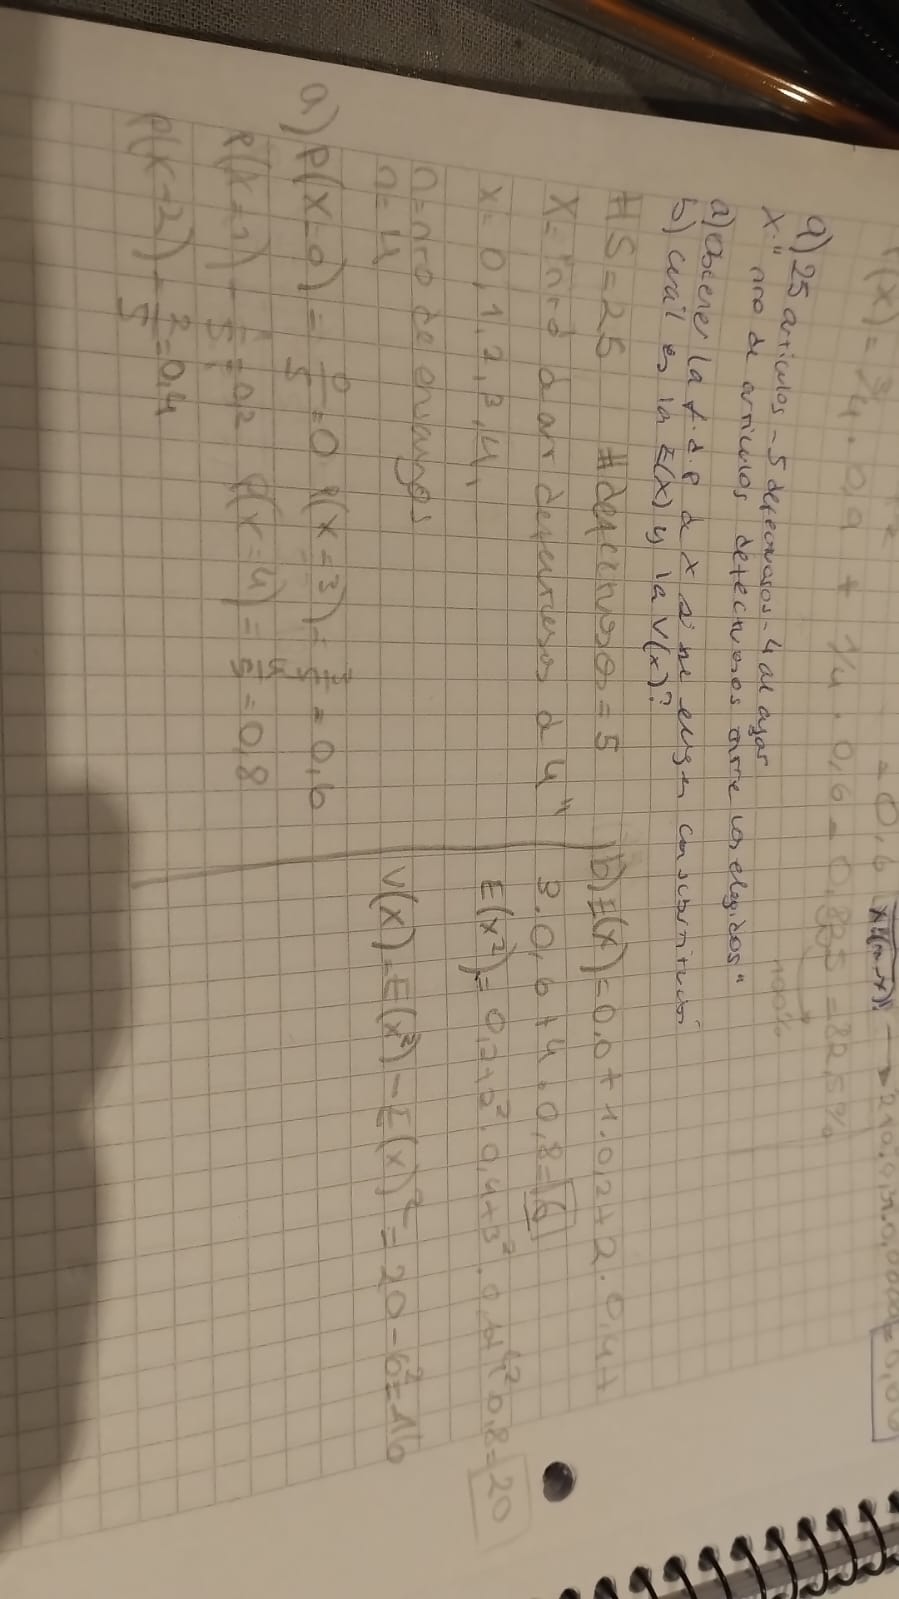 (x) = 3/4 . 0,9 + 1/4 . 0,6 = 0,825 = 82,5%
100%
a) 25 articulos - 5 defectuosos - 4 al azar
X: "nro de articulos defectuosos entre los elegidos"
a) Obtener la f.d.p de x si se eligen con sustitución
b) cuál es la E(x) y la V(x)?
#S = 25 #defectuosos = 5
X = "nro d art defectuosos d 4"
x = 0, 1, 2, 3, 4,
n = nro de ensayos
n = 4
a) P(X=0) = 0/5 = 0 P(x=3) = 3/5 = 0,6
P(X=1) = 1/5 = 0,2 P(x=4) = 4/5 = 0,8
P(x=2) = 2/5 = 0,4
b) E(X) = 0.0 + 1.0,2 + 2.0,4 +
3.0,6 + 4.0,8 = 6
E(x²) = 0,2 + 2². 0,4 + 3². 0,6 + 4² 0,8 = 20
V(X) = E(x²) - E(x)² = 20 - 6² = 16